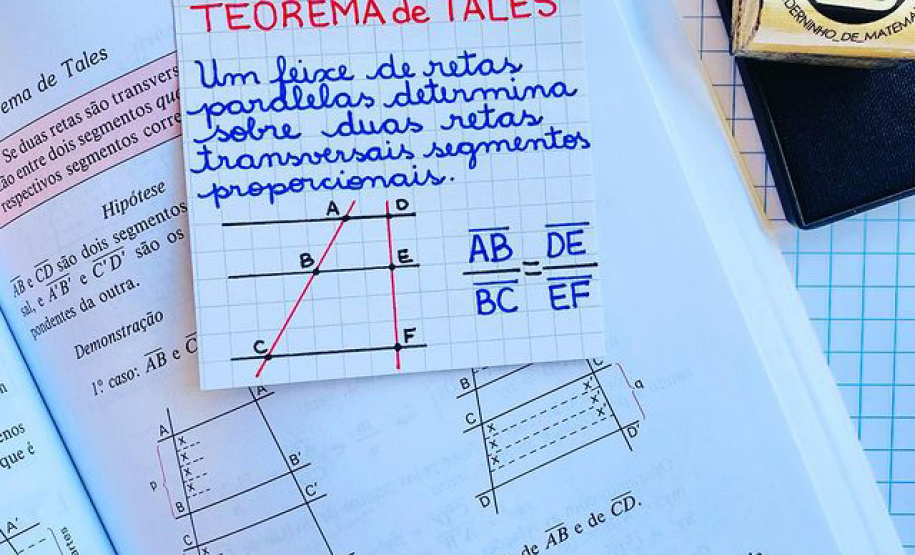 TEOREMA de TALES
Um feixe de retas
paralelas determina
sobre duas retas
transversais segmentos
proporcionais.
A D
B E
C F
AB/BC = DE/EF
DERNINHO_DE_MATEMÁ
ema de Tales
Se duas retas são transvers
ão entre dois segmentos qu
respectivos segmentos corre
Hipótese
AB e CD são dois segmentos
sal, e A'B' e C'D' são os
pondentes da outra.
Demonstração
1º caso: AB e C
A A'
B B'
C C'
p
x
x
x
x
B C'
C
x
x
x
x'
x'
x'
q
D D'
de AB e de CD.
enos
que é
A'